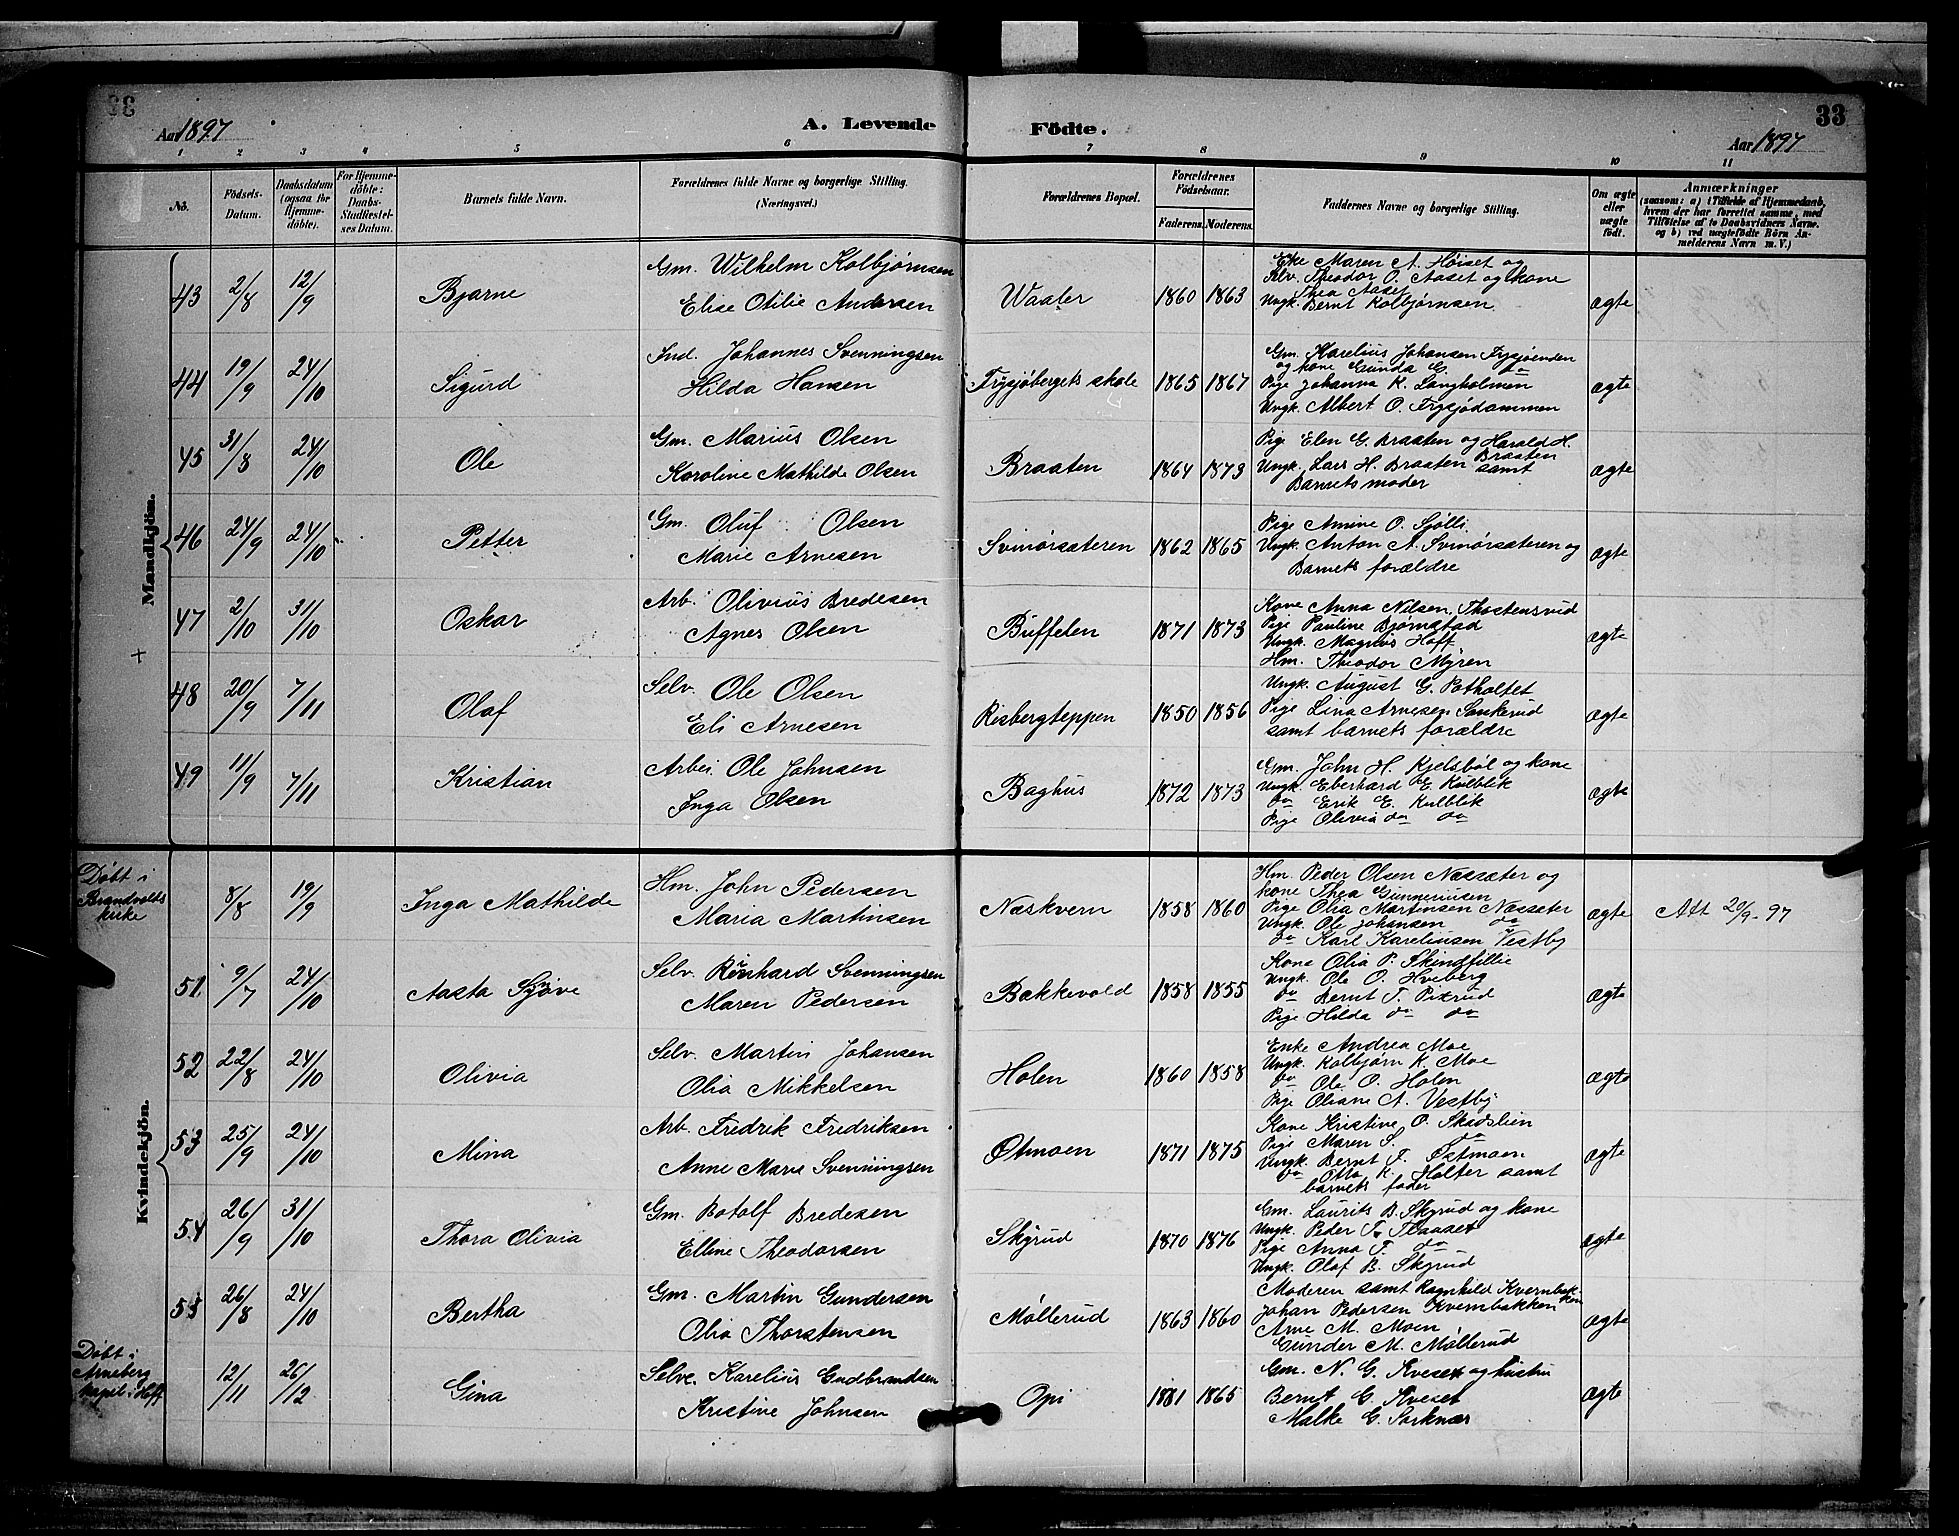 33
Aar 1897
A. Levende Födte.
Aar 1897
33
1 2 3 4 5 6 7 8 9 10 11
No. Födsels-Datum. Daabsdatum (ogsaa for Hjemme-döbte). For Hjemme-döbte: Daabs-Stadfæstel-ses Datum. Barnets fulde Navn. Forældrenes fulde Navne og borgerlige Stilling. (Næringsvei.) Forældrenes Bopæl. Forældrenes Födselsaar. Faderens. Moderens. Faddernes Navne og borgerlige Stilling. Om ægte eller uægte födt. Anmærkninger (saasom: a) i Tilfælde af Hjemmedaab, hvem der har forrettet samme, med Tilföielse af to Daabsvidners Navne. og b) ved uægtefödte Börn Anmelderens Navn m. V.)
Mandkjön.
+
43 2/8 12/9 Bjarne Gm. Wilhelm Kolbjørnsen
Elise Otilie Andersen Waaler 1860 1863 Eke Maren A. Høiset og
Selv. Theodor O. Aaset og kone
Thea Aaset
Ungk. Bernt Kolbjørnsen ægte
44 19/9 24/10 Sigurd Ind. Johannes Svenningsen
Hilda Hansen Frysjøbergets skole 1865 1867 Gm. Karelius Johansen Frysjøenden
og kone Gunda G. do
Pige Johanna K. Langholmen
Ungk. Albert O. Frysjødammen ægte
45 31/8 24/10 Ole Gm. Marius Olsen
Karoline Mathilde Olsen Braaten 1864 1873 Pige Elen G. Braaten og Harald H.
Braaten
Ungk. Lars H. Braaten samt
Barnets moder ægte
46 24/9 24/10 Petter Gm. Oluf Olsen
Marie Arnesen Svinørsæteren 1862 1865 Pige Amine O. Sjølli
Ungk. Anton A. Svinørsæteren og
Barnets forældre ægte
47 2/10 31/10 Oskar Arb. Olivius Bredesen
Agnes Olsen Buffelen 1871 1873 Kone Anna Nilsen, Thostensvid
Pige Pauline Bjørnstad
Ungk. Magnus Hoff
Hm. Theodor Myren ægte
48 20/9 7/11 Olaf Selv. Ole Olsen
Eli Arnesen Risbergteppen 1850 1856 Ungk. August G. Potholtet
Pige Lina Arnesen Sankerud
samt barnets forældre ægte
49 11/9 7/11 Kristian Arbei. Ole Johnsen
Inga Olsen Baghus 1872 1873 Gm. John H. Kjelsbøl og kone
Ungk. Eberhard E. Kulblik
do Erik E. Kulblik
Pige Olivia do do ægte
Kvindekjön.
Døbt i
Brandvolds
kirke 8/8 19/9 Inga Mathilde Hm. John Pedersen
Maria Martinsen Næskvern 1858 1860 Hm. Peder Olsen Næssæter og
kone Thea Gunneriusen
Pige Olia Martinsen Næssæter
Ungk. Ole Johansen do
do Karl Kareliusen Vestby ægte Att 20/9-97
51 9/7 24/10 Aasta Sjøve Selv. Reinhard Svenningsen
Maren Pedersen Bakkevold 1858 1855 Kone Olia P. Skindfillie
Ungk. Ole O. Hveberg
do Bernt T. Pikrud
Pige Hilda do do ægte
52 22/8 24/10 Olivia Selv. Martin Johansen
Olia Mikkelsen Holen 1860 1858 Enke Andrea Moe
Ungk. Kolbjørn K. Moe
do Ole O. Holen
Pige Oliane A. Vestby ægte
53 25/9 24/10 Mina Arb. Fredrik Fredriksen
Anne Marie Svenningsen Østmoen 1871 1875 Kone Kristine O. Skadslien
Pige Maren S. do
Ungk. Bernt F. Østmoen
do Otto K. Holter samt
barnets fader ægte
54 26/9 31/10 Thora Olivia Gm. Botolf Bredesen
Elline Theodorsen Skyrud 1870 1876 Gm. Laurits B. Skyrud og kone
Ungk. Peder T. Flaaset
Pige Anna T. do
Ungk. Olaf B. Skyrud ægte
55 26/8 24/10 Bertha Gm. Martin Gundersen
Olia Thorstensen Møllerud 1863 1860 Moderen samt Ragnhild Kvernbakken
Johan Pedersen Kvernbakken
Arne M. Moen
Gunder M. Møllerud ægte
Døbt i
Arneberg
kapel i Hoff 12/11 26/12 Gina Selve. Karelius Gudbrandsen
Kristine Johnsen Opi 1861 1865 Gm. N. G. Kveset og hustru
Bernt G. Kveset
Malke G. Sorknæs ægte